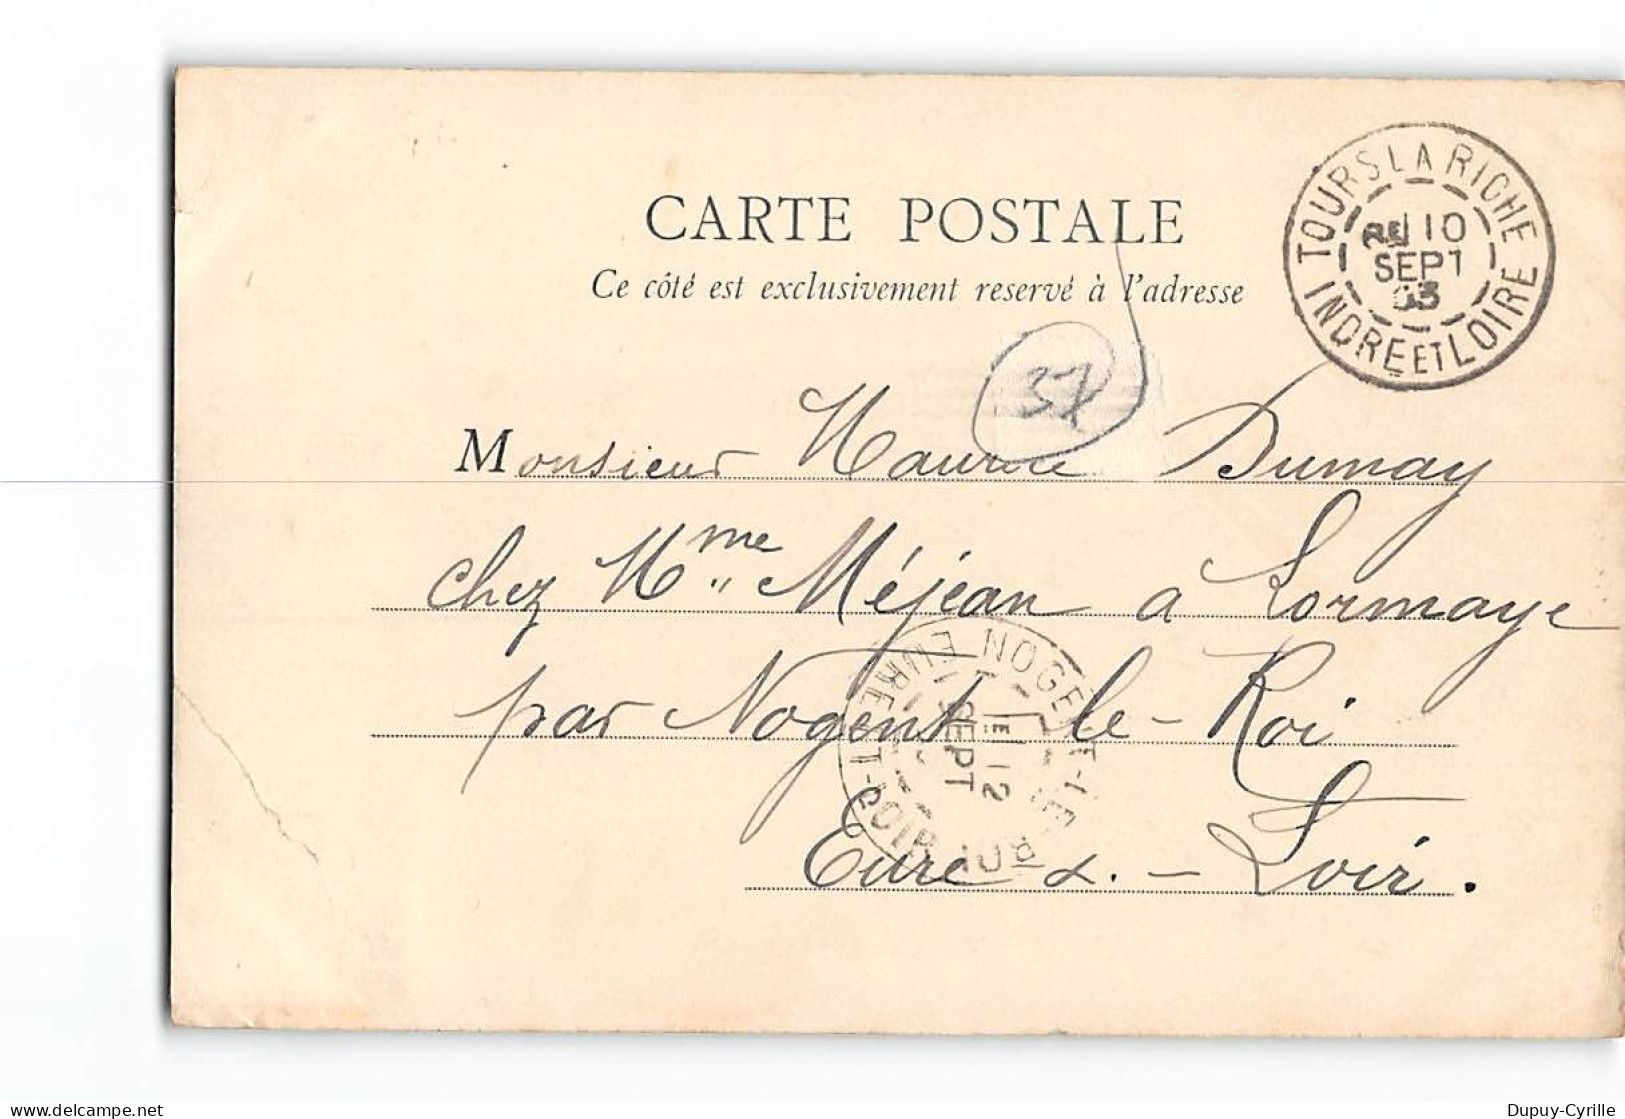 CARTE POSTALE
Ce côté est exclusivement reservé à l'adresse
TOURS LA RICHE
10
SEPT
03
INDRE ET LOIRE
37
Monsieur Maurice Dumay
chez Mme Méjean à Lormaye
par Nogent le-Roi
Eure &.-Loir.
NOGENT-LE-ROI
E 12
SEPT
EURE-ET-LOIR
delcampe.net
Dupuy-Cyrille